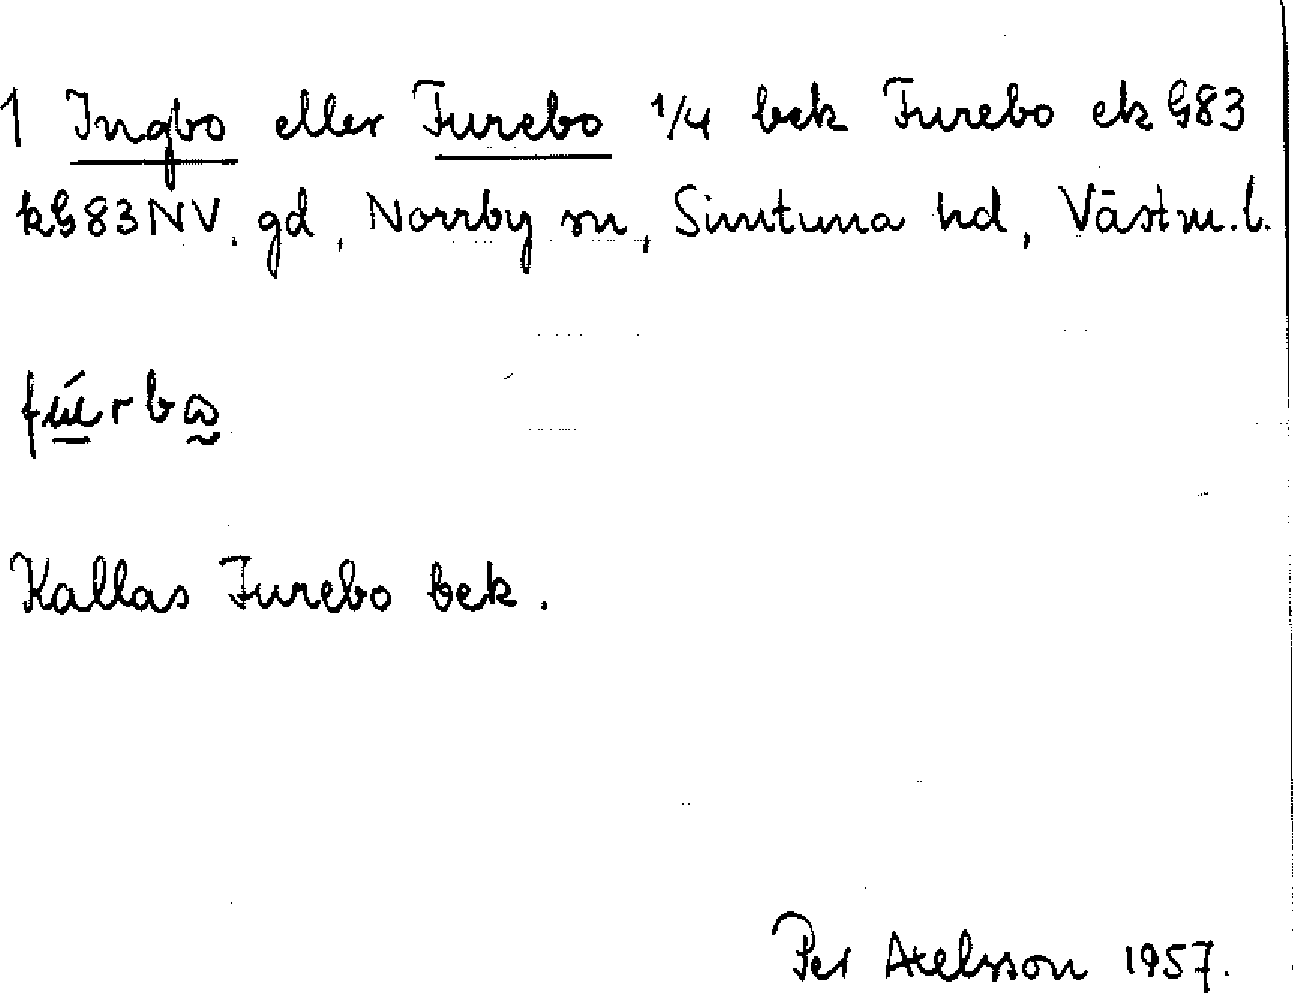 1 Ingbo eller Furebo 1/4 bek Furebo ek G83
kG83NV. gd, Norrby sn, Simtuna hd, Västm. l.
fúrbω
Kallas Furebo bek.
Per Axelsson 1957.